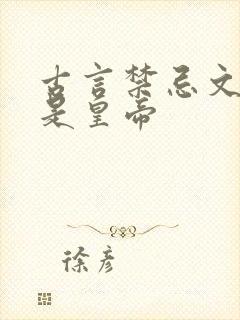 古言禁忌文
是皇帝
徐彦